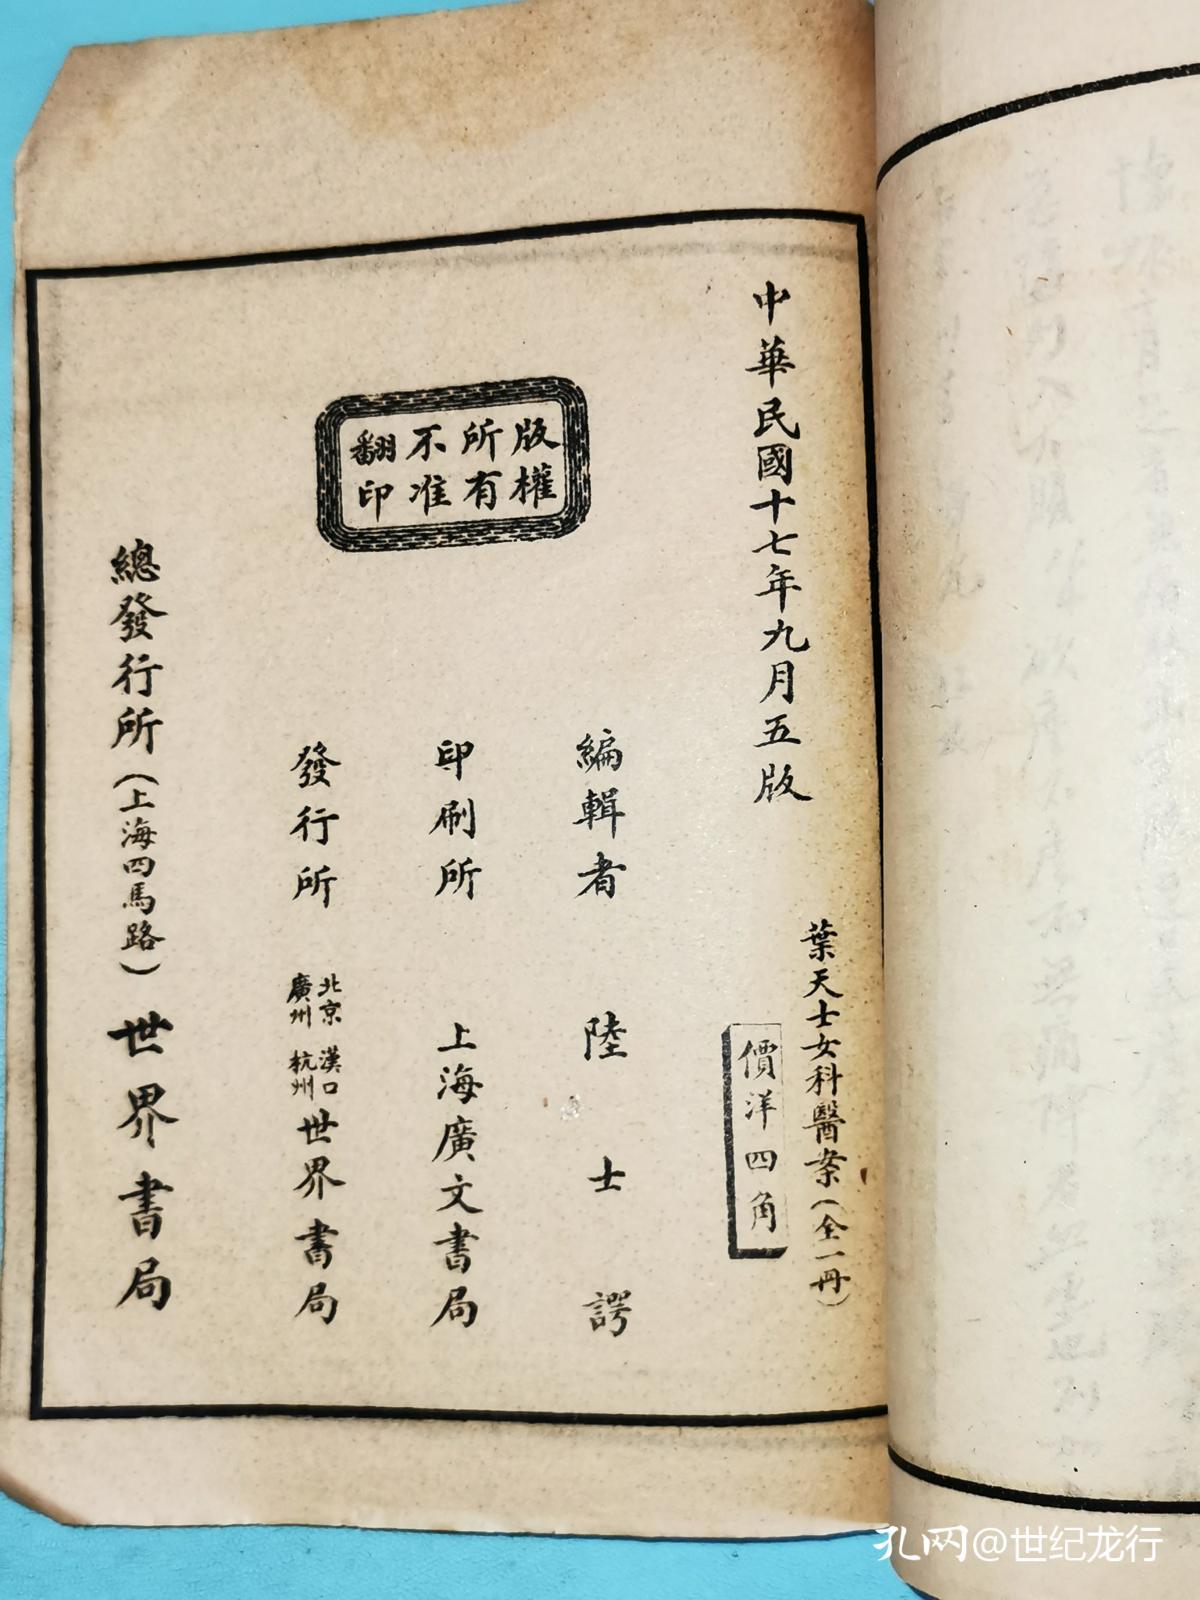 中華民國十七年九月五版
葉天士女科醫案(全一冊)
價洋四角
版權
所有
不准
翻印
編輯者 陸士諤
印刷所 上海廣文書局
發行所 北京 漢口 廣州 杭州 世界書局
總發行所(上海四馬路)世界書局
孔网@世纪龙行